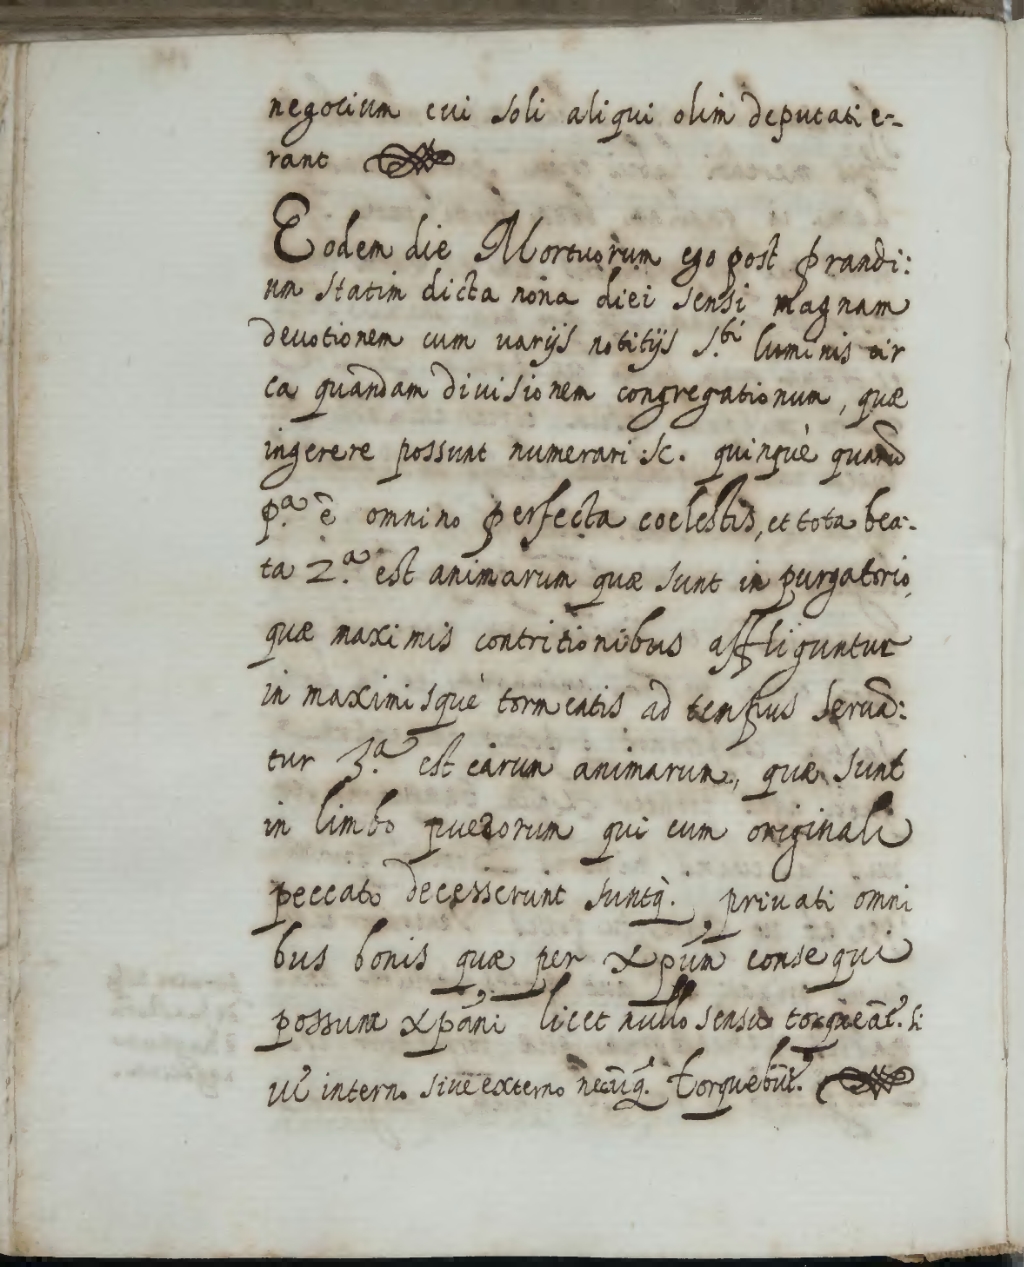 negotium cui soli aliqui olim deputati e-
rant
Eodem die Mortuorum ego post prandi:
um statim dicta nona diei sensi magnam
deuotionem cum varijs notitijs S.ti luminis cir
ca quandam diuisionem congregationum, quæ
ingerere possunt numerari sc. quinquè quarũ
p.a ẽ omnino perfecta coelestis, et tota bea-
ta 2.a est animarum quæ sunt in purgatorio,
quæ maximis contritionibus affliguntur
in maximisquè tormẽtis ad tempus seruã:
tur 3.a est earum animarum, quæ sunt
in limbo puerorum qui cum originali
peccato decesserunt suntq̀. priuati omni
bus bonis quæ per xpũm consequi
possunt xpáni licet nullo sensu torqueãt.r si
ue interno siue externo necũq̃. torquebũt.r